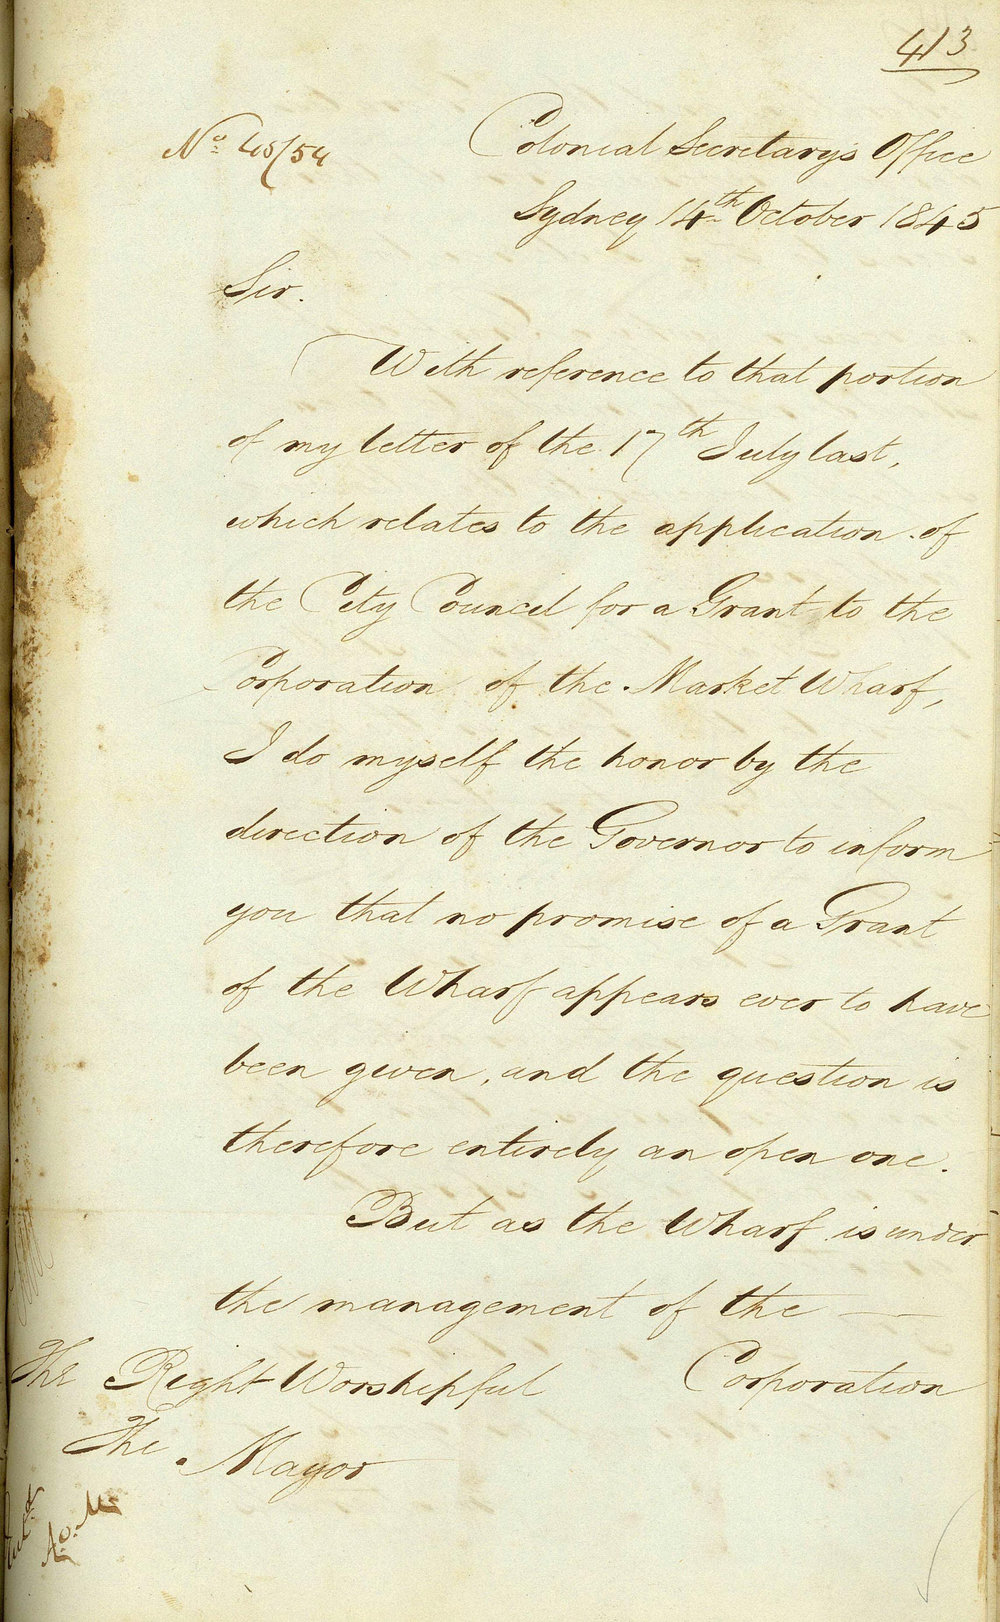 413
No. 45/54
Colonial Secretary's Office
Sydney 14th October 1845
Sir.
With reference to that portion
of my letter of the 17th July last,
which relates to the application of
the City Council for a Grant to the
Corporation of the Market Wharf,
I do myself the honor by the
direction of the Governor to inform
you that no promise of a Grant
of the Wharf appears ever to have
been given, and the question is
therefore entirely an open one.
But as the Wharf is under
the management of the
Corporation
The Right Worshipful
The Mayor